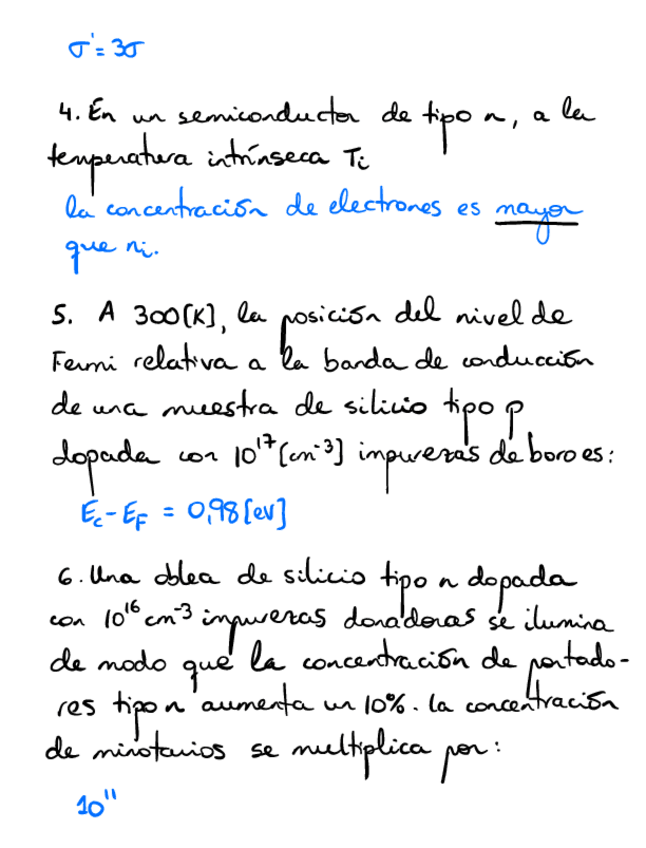 σ' = 3σ
4. En un semiconductor de tipo n, a la
temperatura intrínseca Ti
la concentración de electrones es mayor
que ni.
5. A 300 [K], la posición del nivel de
Fermi relativa a la banda de conducción
de una muestra de silicio tipo p
dopada con 10¹⁷ [cm⁻³] impurezas de boro es:
Ec - EF = 0,98 [eV]
6. Una oblea de silicio tipo n dopada
con 10¹⁶ cm⁻³ impurezas donadoras se ilumina
de modo que la concentración de portado-
res tipo n aumenta un 10%. la concentración
de minotarios se multiplica por:
10¹¹